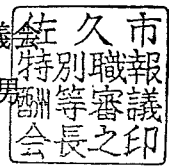 佐久市
特別職報
酬等審議
会長之印
男